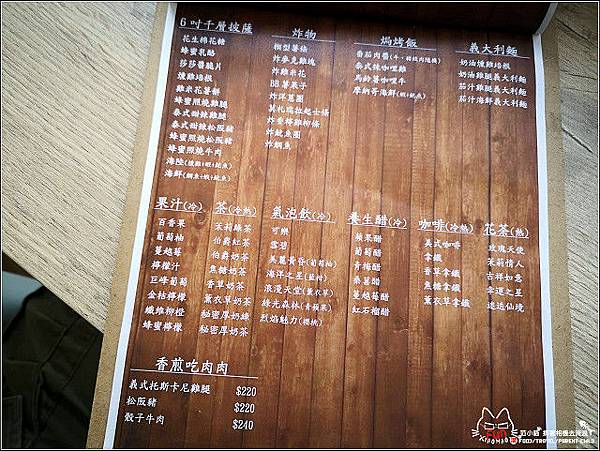 6吋千層披薩
花生棉花糖
蜂蜜乳酪
莎莎醬脆片
燻雞培根
雞米花薯餅
蜂蜜照燒雞腿
泰式甜辣雞腿
泰式甜辣松阪豬
蜂蜜照燒松阪豬
蜂蜜照燒牛肉
海陸(燻雞+蝦+魷魚)
海鮮(鯛魚+蝦+魷魚)
炸物
模型薯條
炸麥克雞塊
炸雞米花
BB薯菓子
炸洋蔥圈
其札瑞拉起士條
炸香檸雞柳條
炸魷魚圈
炸鯛魚
焗烤飯
番茄肉醬(牛、豬絞肉隨機)
泰式辣咖哩雞
馬鈴薯咖哩牛
摩納哥海鮮(蝦+魷魚)
義大利麵
奶油燻雞培根
奶油雞腿義大利麵
茄汁雞腿義大利麵
茄汁海鮮義大利麵
果汁(冷)
百香果
葡萄柚
蔓越莓
檸檬汁
巨峰葡萄
金桔檸檬
纖維柳橙
蜂蜜檸檬
茶(冷熱)
茉莉綠茶
伯爵紅茶
伯爵奶茶
焦糖奶茶
香草奶茶
薰衣草奶茶
秘密厚奶綠
秘密厚奶茶
氣泡飲(冷)
可樂
雪碧
美麗黃昏(葡萄柚)
海洋之星(藍柑)
浪漫天堂(薰衣草)
綠光森林(青蘋果)
烈焰魅力(櫻桃)
養生醋(冷)
蘋果醋
葡萄醋
青梅醋
桑葚醋
蔓越莓醋
紅石榴醋
咖啡(冷熱)
美式咖啡
拿鐵
香草拿鐵
焦糖拿鐵
薰衣草拿鐵
花茶(熱)
玫瑰天使
茉莉情人
吉祥如意
幸運之星
逍遙仙境
香煎吃肉肉
義式托斯卡尼雞腿 $220
松阪豬 $220
骰子牛肉 $240
FOOD/TRAVEL/PARENT-CHILD